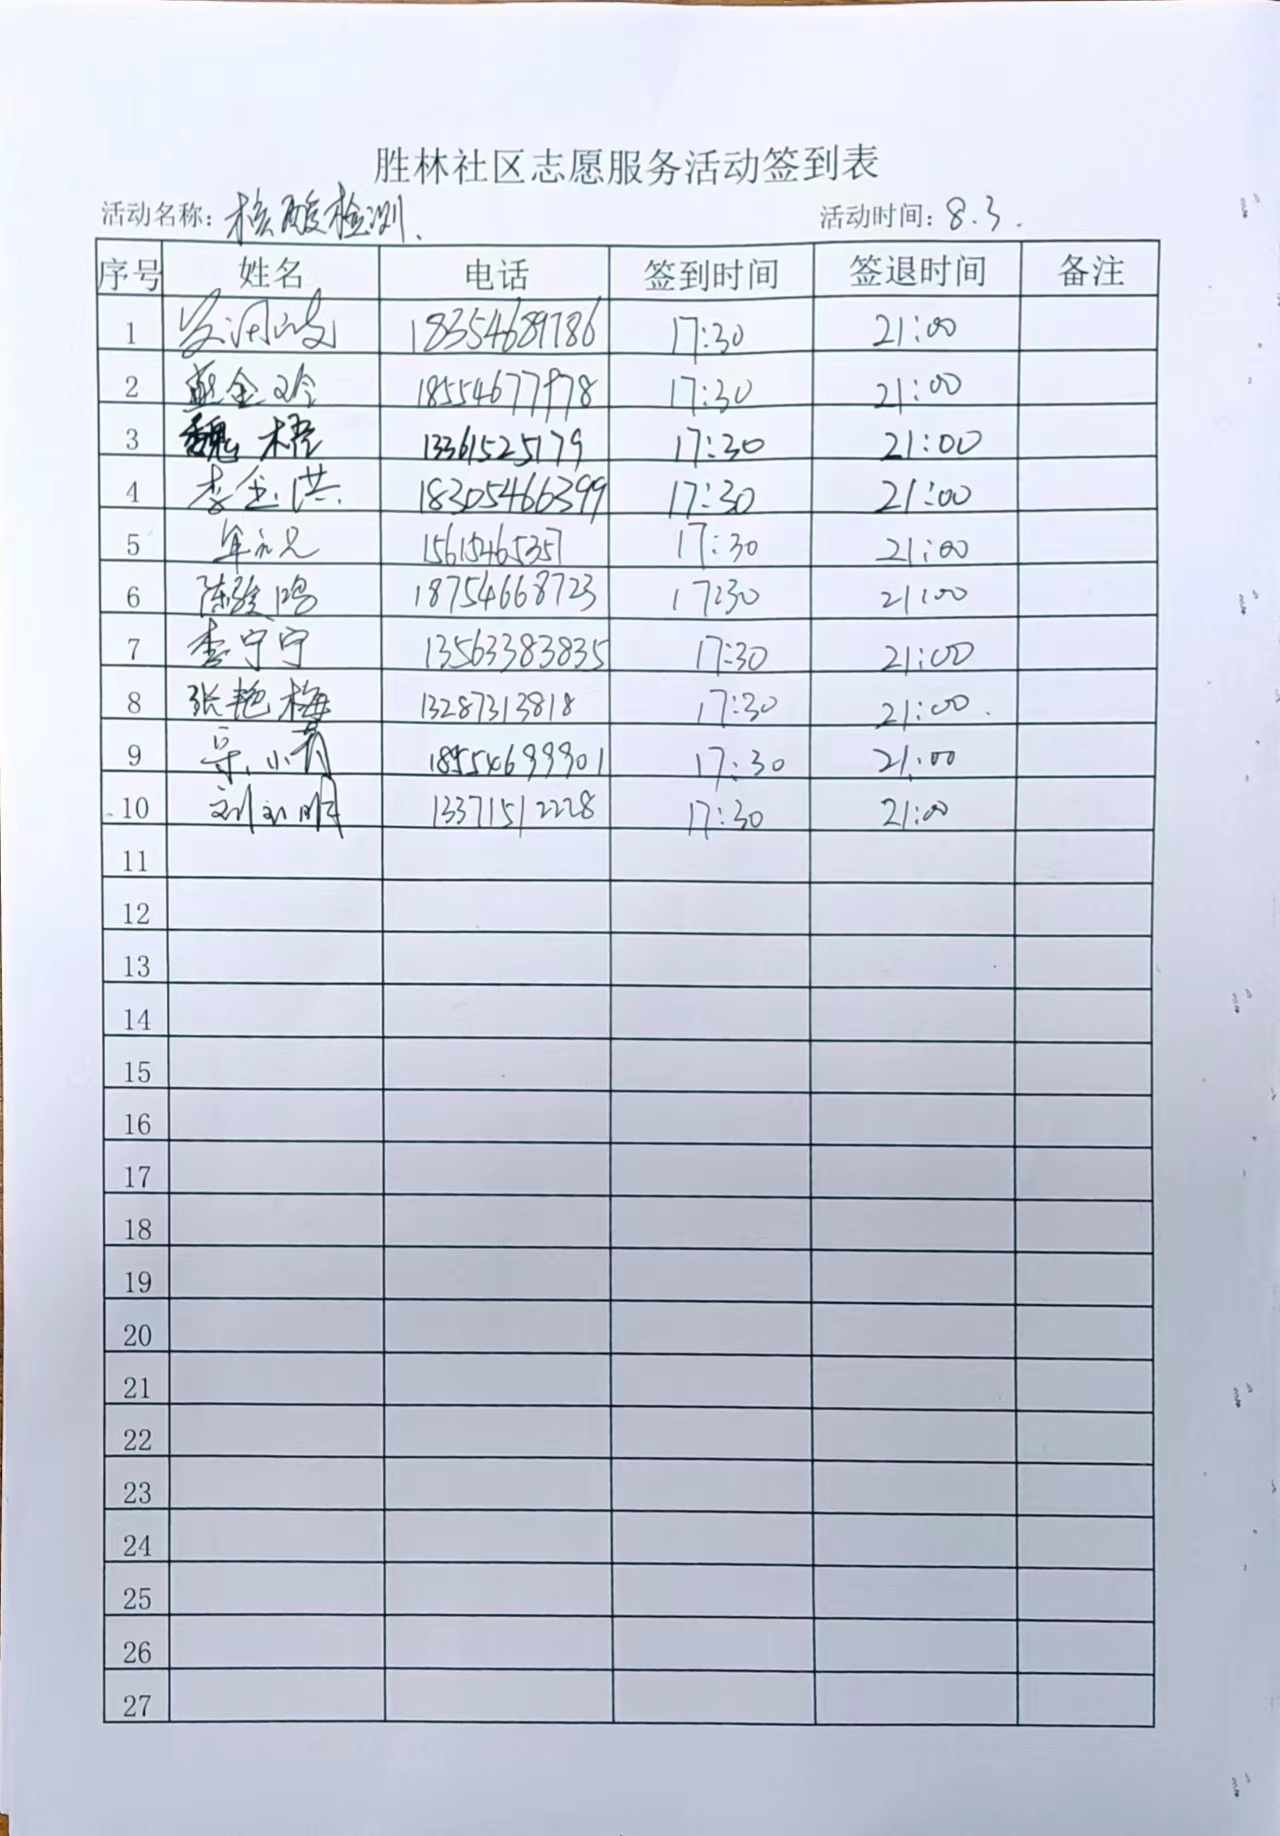 胜林社区志愿服务活动签到表
活动名称：核酸检测. 活动时间：8.3.
序号 姓名 电话 签到时间 签退时间 备注
1 18354689786 17:30 21:00
2 17:30 21:00
3 魏橙 13361525179 17:30 21:00
4 李金洪 18305466399 17:30 21:00
5 15615465357 17:30 21:00
6 18754668723 17:30 21:00
7 李宁宁 13563383835 17:30 21:00
8 张艳梅 13287313818 17:30 21:00.
9 18554699901 17:30 21:00
10 13371512228 17:30 21:00
11
12
13
14
15
16
17
18
19
20
21
22
23
24
25
26
27